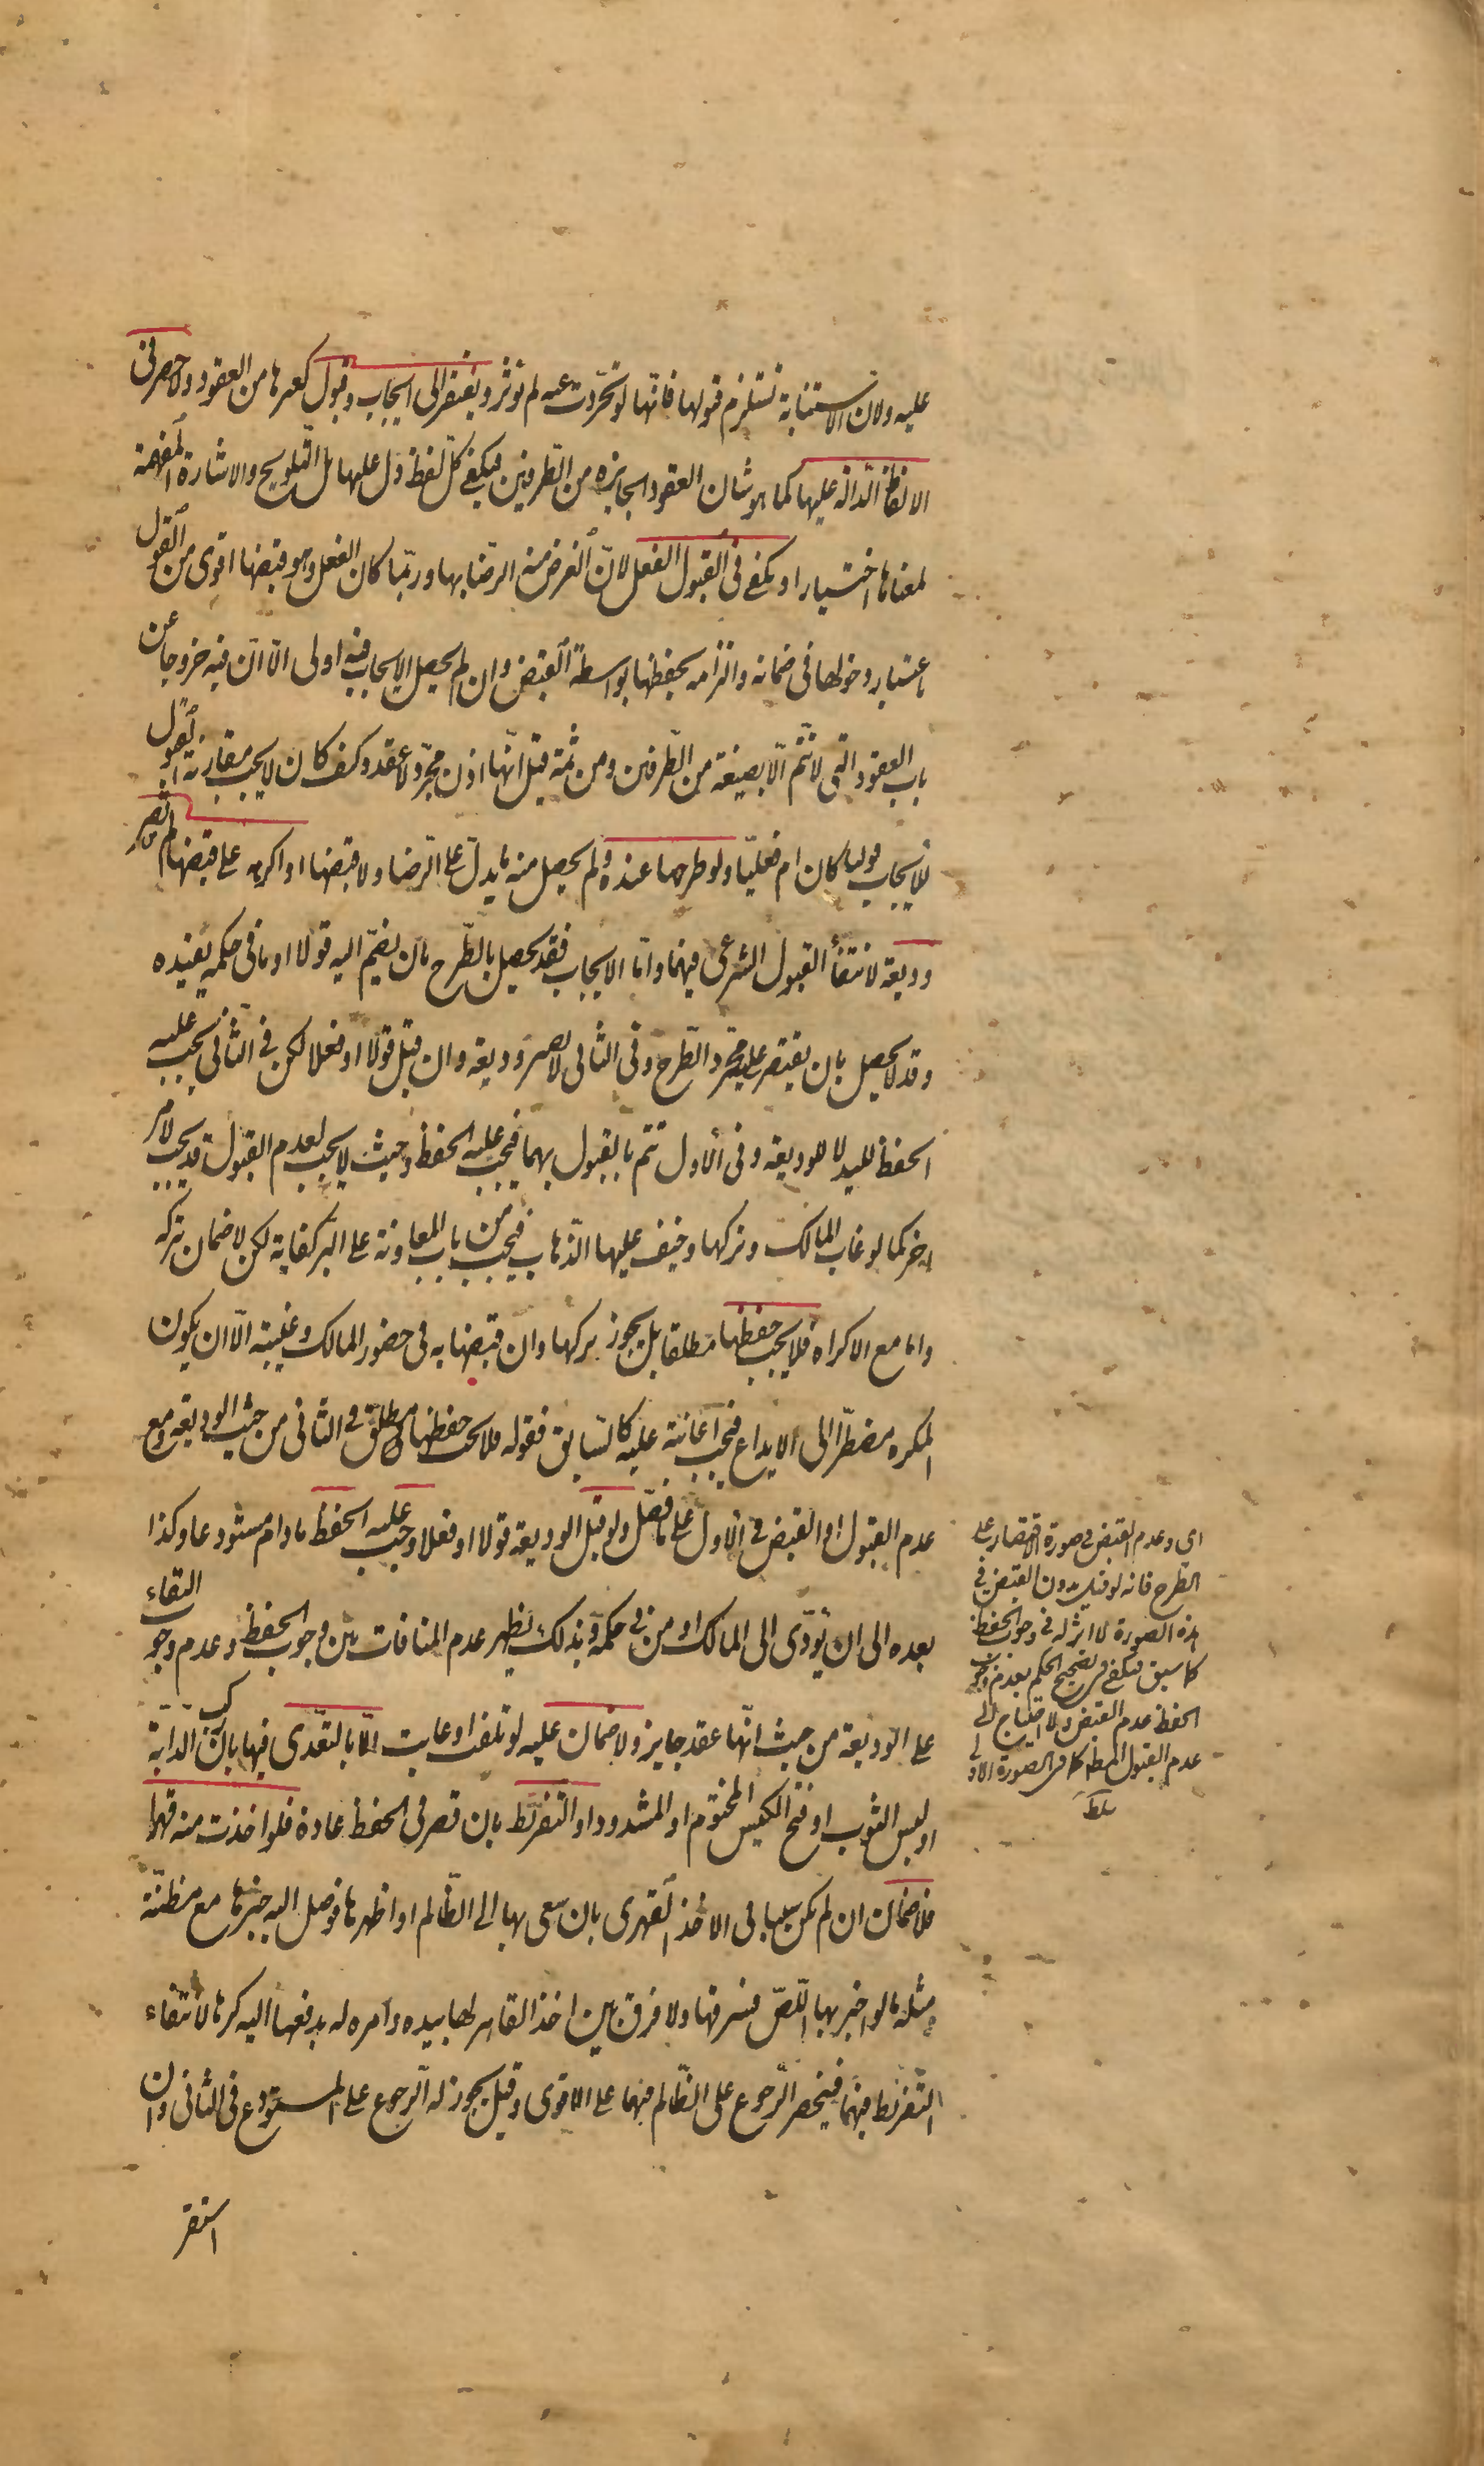 عليه ولان الاستنابة تستلزم قبولها فانها لو تجردت عنه لم تؤثر ويفتقر الى ايجاب وقبول كغيرها من العقود ولا حصر في
الالفاظ الدالة عليها كما هو شان العقود الجايزة من الطرفين فيكفي كل لفظ دل عليها بل التلويح والاشارة المفهمة
لمعناها اختيارا ويكفي في القبول الفعل لان الغرض منه الرضا بها وربما كان الفعل وهو قبضها اقوى من القول
باعتبار دخولها في ضمانه والتزامه بحفظها بواسطة القبض وان لم يحصل الايجاب فيه اولى الا ان فيه خروجا عن
باب العقود التي لا تتم الا بصيغة من الطرفين ومن ثمة قيل انها اذن مجرد لا عقد وكيف كان لا يجب مقارنة القبول
للايجاب قوليا كان ام فعليا ولو طرحها عنده ولم يحصل منه ما يدل على الرضا ولا قبضها او اكرهه على قبضها لم تصر
وديعة لانتفاء القبول الشرعي فيهما واما الايجاب فقد يحصل بالطرح بان يضم اليه قولا او ما في حكمه يفيده
وقد لا يحصل بان يقتصر على مجرد الطرح وفي الثاني لا تصير وديعة وان قبل قولا او فعلا لكن في الثاني يجب عليه
الحفظ لليد لا للوديعة وفي الاول تتم بالقبول بهما فيجب عليه الحفظ وحيث لا يجب لعدم القبول قد يجب لامر
اخر كما لو غاب المالك وتركها وخيف عليها الذهاب فيجب من باب المعاونة على البر كفاية لكن لا ضمان بتركه
واما مع الاكراه فلا يجب حفظها مطلقا بل يجوز تركها وان قبضها به في حضور المالك وغيبته الا ان يكون
المكره مضطرا الى الايداع فيجب اعانته عليه كالسابق فقوله فلا يجب حفظها مطلق في الثاني من حيث الوديعة ومع
عدم القبول او القبض في الاول على ما فصل ولو قبل الوديعة قولا او فعلا وجب عليه الحفظ ما دام مستودعا وكذا
بعده الى ان يؤدى الى المالك او من في حكمه وبذلك يظهر عدم المنافات بين وجوب الحفظ وعدم وجوب البقاء
على الوديعة من حيث انها عقد جايز ولا ضمان عليه لو تلفت او عابت الا بالتعدى فيها بان ركب الدابة
او لبس الثوب او فتح الكيس المختوم او المشدود او التفريط بان قصر في الحفظ عادة فلو اخذت منه قهرا
فلا ضمان ان لم يكن سببا في الاخذ القهرى بان سعى بها الى الظالم او اظهرها فوصل اليه خبرها مع مظنته
ومثله ما لو اخبر بها اللص فسرقها ولا فرق بين اخذ القاهر لها بيده وامره له بدفعها اليه كرها لانتفاء
التفريط فيهما فينحصر الرجوع على الظالم فيهما على الاقوى وقيل يجوز له الرجوع على المستودع في الثاني وان
استقر
اى وعدم القبض في صورة الاقتصار على
الطرح فانه لو قبل بدون القبض في
هذه الصورة لا اثر له في وجوب الحفظ
كما سبق فيكفي في تصحيح الحكم بعدم وجوب
الحفظ عدم القبض ولا احتياج الى
عدم القبول كما في الصورة الاولى